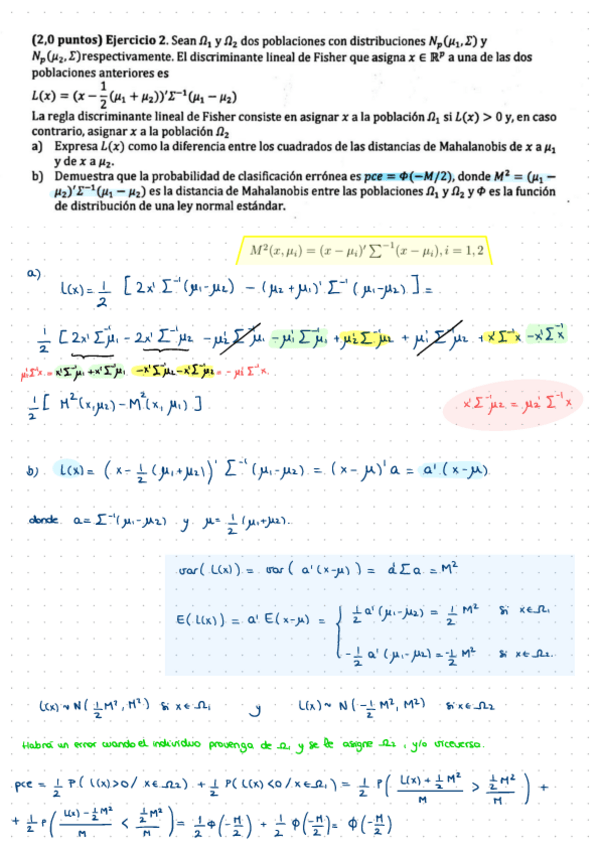 (2,0 puntos) Ejercicio 2. Sean Ω₁ y Ω₂ dos poblaciones con distribuciones Nₚ(μ₁, Σ) y
Nₚ(μ₂, Σ)respectivamente. El discriminante lineal de Fisher que asigna x ∈ ℝᵖ a una de las dos
poblaciones anteriores es
L(x) = (x − 1/2 (μ₁ + μ₂))′Σ⁻¹(μ₁ − μ₂)
La regla discriminante lineal de Fisher consiste en asignar x a la población Ω₁ si L(x) > 0 y, en caso
contrario, asignar x a la población Ω₂
a) Expresa L(x) como la diferencia entre los cuadrados de las distancias de Mahalanobis de x a μ₁
y de x a μ₂.
b) Demuestra que la probabilidad de clasificación errónea es pce = Φ(−M/2), donde M² = (μ₁ −
μ₂)′Σ⁻¹(μ₁ − μ₂) es la distancia de Mahalanobis entre las poblaciones Ω₁ y Ω₂ y Φ es la función
de distribución de una ley normal estándar.
M²(x, μᵢ) = (x − μᵢ)′ Σ⁻¹(x − μᵢ), i = 1, 2
a)
L(x) = 1/2 [ 2x' Σ⁻¹(μ₁-μ₂) - (μ₂+μ₁)' Σ⁻¹ (μ₁-μ₂) ] =
1/2 [ 2x' Σ⁻¹μ₁ - 2x' Σ⁻¹μ₂ - μ₂' Σ⁻¹μ₁ - μ₁' Σ⁻¹μ₁ + μ₂' Σ⁻¹μ₂ + μ₁' Σ⁻¹μ₂ + x'Σ⁻¹x - x'Σ⁻¹x
μ₁'Σ⁻¹x = x'Σ⁻¹μ₁ + x'Σ⁻¹μ₁ -x'Σ⁻¹μ₂ - x'Σ⁻¹μ₂ = - μ₂'Σ⁻¹x
1/2 [ M²(x,μ₂) - M²(x, μ₁) ]
x'Σ⁻¹μ₂ = μ₂' Σ⁻¹x
b) L(x) = (x - 1/2 (μ₁+μ₂))' Σ⁻¹ (μ₁-μ₂) = (x - μ)'a = a' (x-μ)
donde a = Σ⁻¹(μ₁-μ₂) y μ = 1/2 (μ₁+μ₂).
var( L(x) ) = var ( a'(x-μ) ) = a'Σa = M²
E( L(x) ) = a' E(x-μ) = { 1/2 a'(μ₁-μ₂) = 1/2 M² si x∈Ω₁
-1/2 a' (μ₁-μ₂) = -1/2 M² si x∈Ω₂
L(x) ~ N( 1/2 M², M²) si x∈Ω₁ y L(x) ~ N(-1/2 M², M²) si x∈Ω₂
Habrá un error cuando el individuo provenga de Ω₁ y se le asigne Ω₂, y/o viceversa.
pce = 1/2 P( L(x)>0 / x∈Ω₂) + 1/2 P( L(x)<0 / x∈Ω₁) = 1/2 P( (L(x) + 1/2 M²)/M > (1/2 M²)/M ) +
+ 1/2 P( (L(x) - 1/2 M²)/M < (1/2 M²)/M ) = 1/2 Φ(-M/2) + 1/2 Φ(-M/2) = Φ(-M/2)